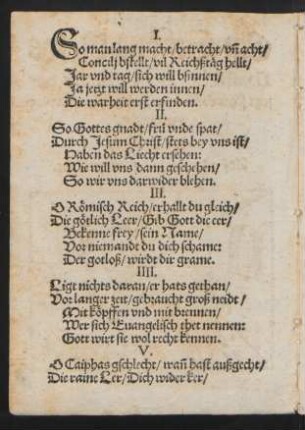 I.
So man lang macht/ betracht/ vñ acht/
Concilj bstellt/ vil Reichßtäg hellt/
Jar vnd tag/ sich will bsinnen/
Ja jetzt will werden innen/
Die warheit erst erfinden.
II.
So Gottes gnadt/ frü vnde spat/
Durch Jesum Christ/ stets bey vns ist/
Haben das Liecht ersehen:
Wie will vns dann geschehen/
So wir vns darwider blehen.
III.
O Römisch Reich/ erhallt du gleich/
Die götlich Leer/ Gib Gott die eer/
Bekenne frey/ sein Name/
Vor niemandt du dich schame:
Der gotloß/ wirdt dir grame.
IIII.
Ligt nichts daran/ er hats gethan/
Vor langer zeit/ gebraucht groß neidt/
Mit köpffen vnd mit brennen/
Wer sich Euangelisch thet nennen:
Gott wirt sie wol recht kennen.
V.
O Caiphas gschlecht/ wañ hast außgecht/
Die raine Ler/ Dich wider ker/